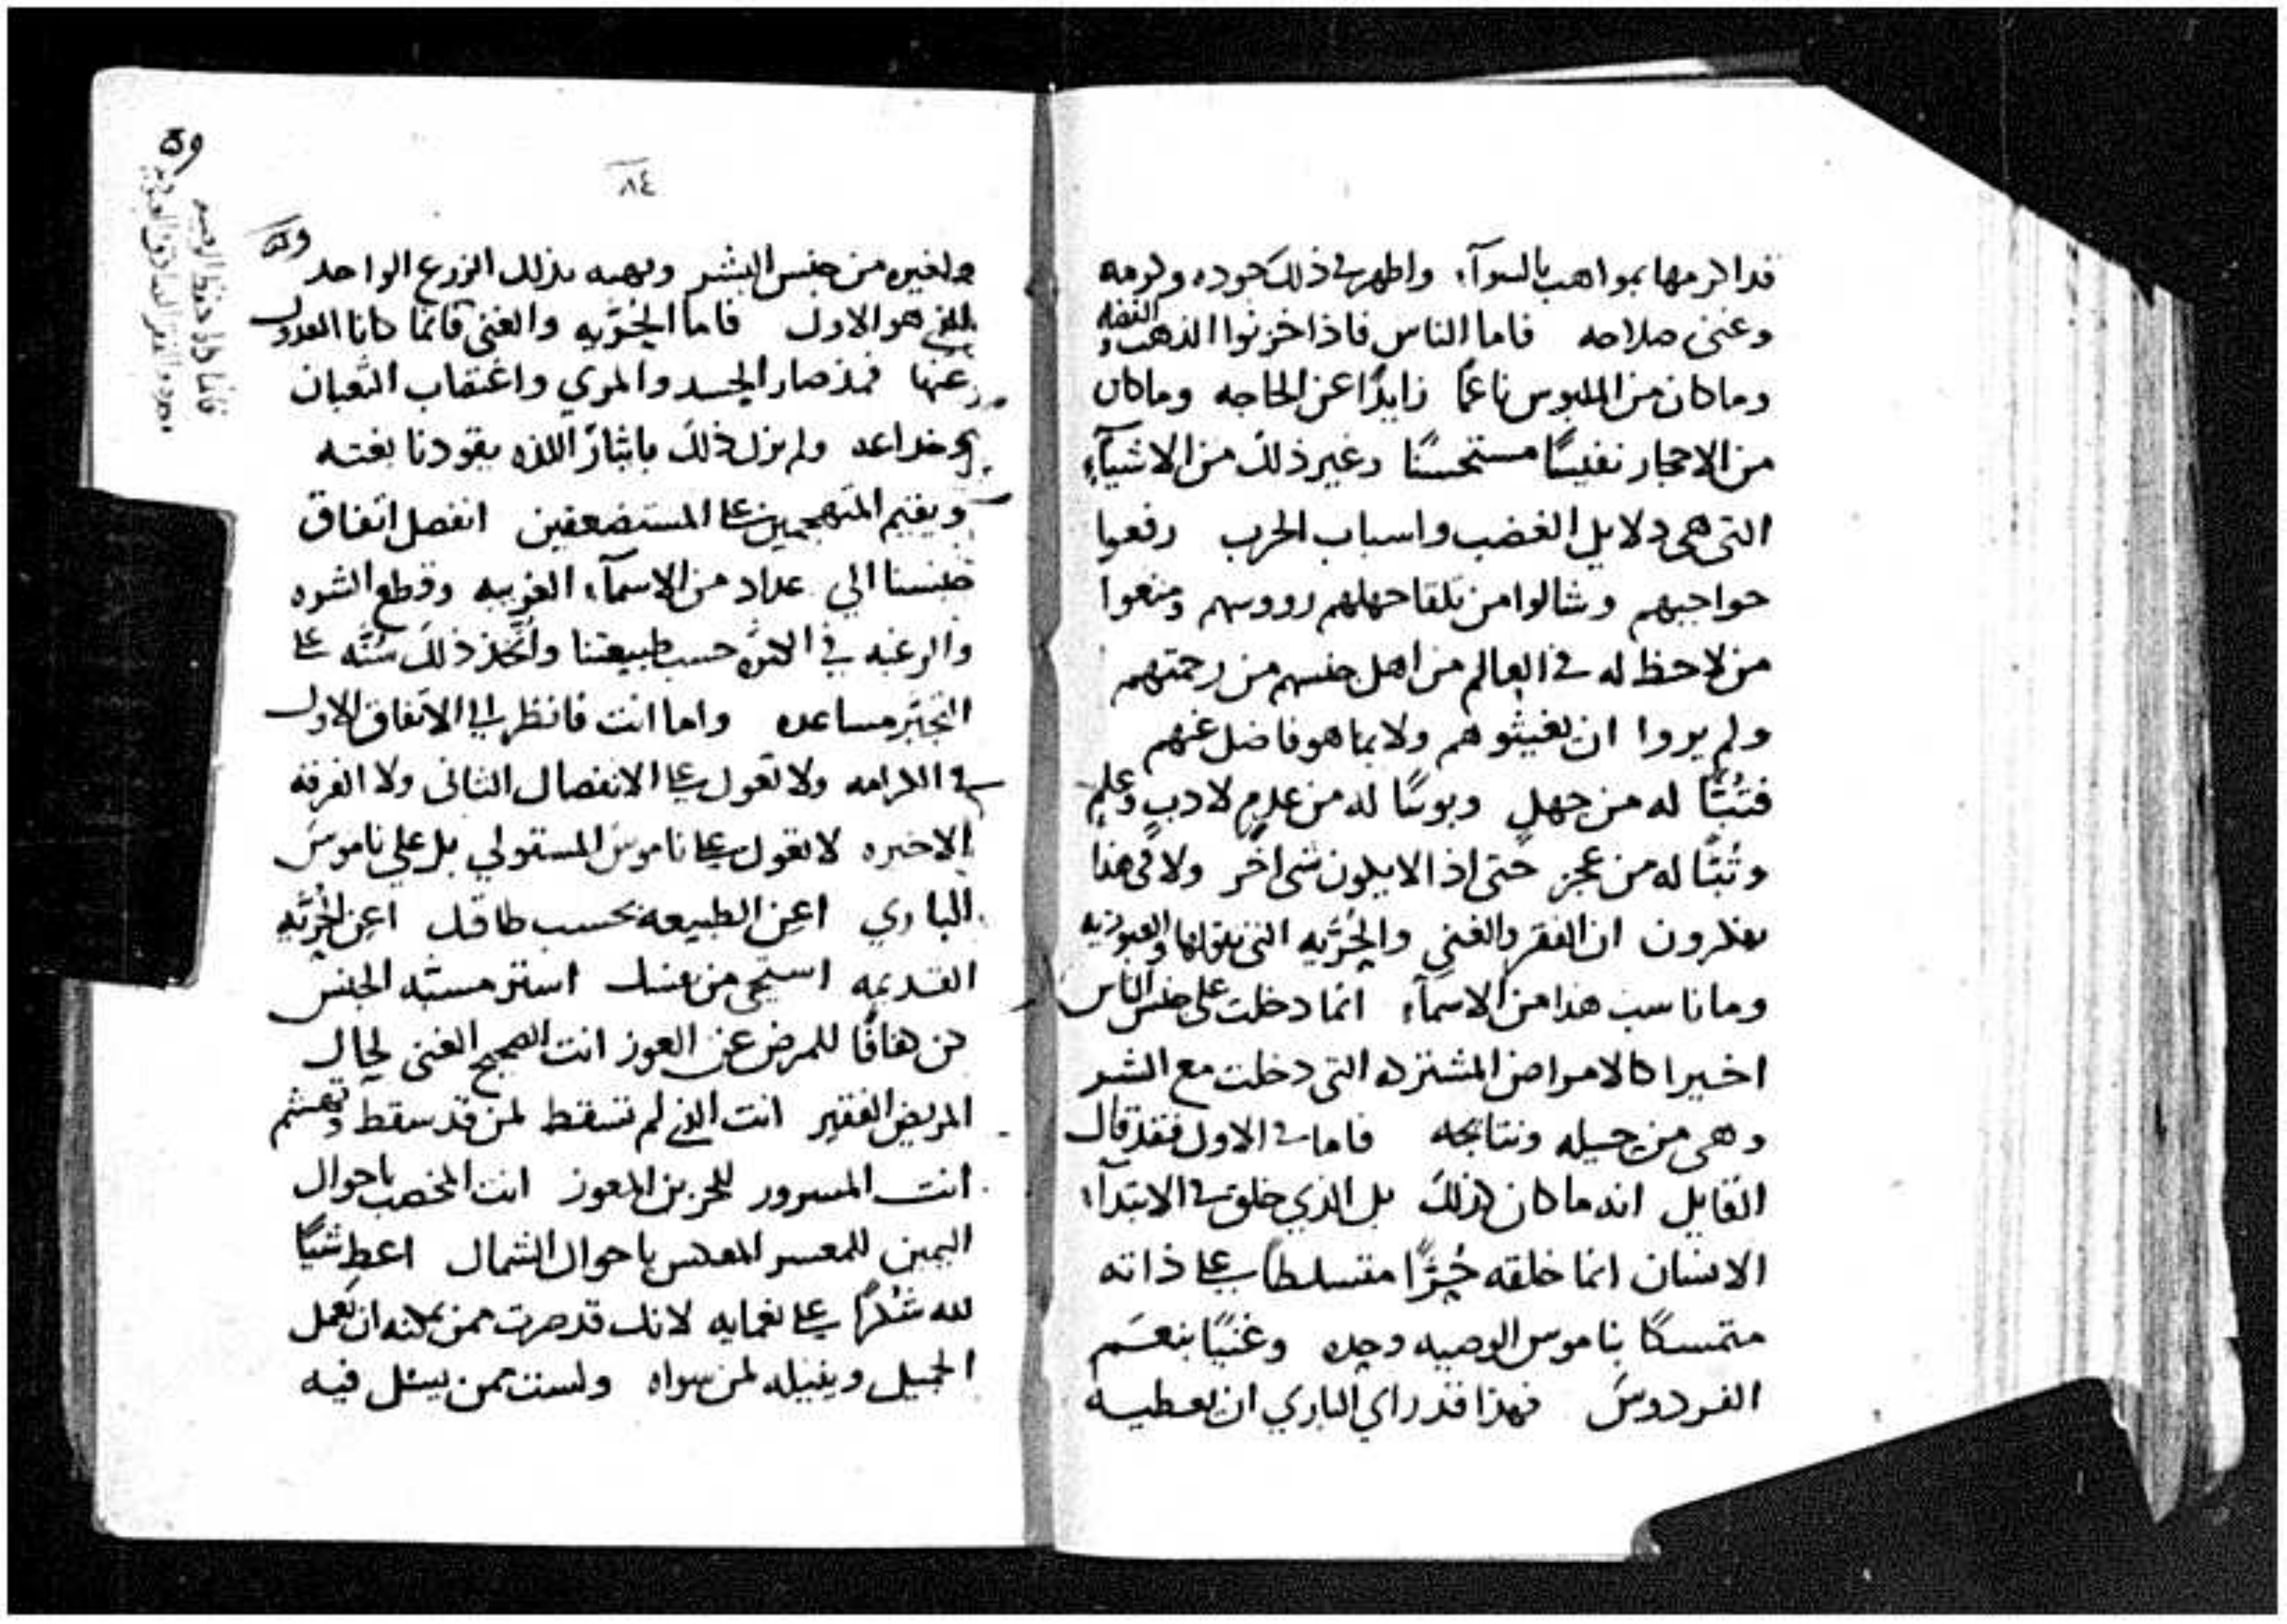 قد اكرمها بمواهب بالسوآء واظهر في ذلك جوده وكرمه
وغنى صلاحه فاما الناس فاذا خزنوا الذهب والفضه
وما كان من الملبوس ناعمًا زايدًا عن الحاجه وما كان
من الاحجار نفيسًا مستحسنًا وغير ذلك من الاشيآء
التي هي دلايل الغضب واسباب الحرب رفعوا
حواجبهم وشالوا من تلقا جهلهم رووسهم ومنعوا
من لا حظ له في العالم من اهل جنسهم من رحمتهم
ولم يروا ان يغيثوهم ولا بما هو فاضل عنهم
فتبًّا له من جهلٍ وبوسًا له من عدمٍ لادبٍ وعلمٍ
وتبًّا له من عجز حتى اذ الا يكون شي اخر ولا في هذا
يفكرون ان الفقر والغنى والحُرّيه التي نقولها والعبوديه
وما ناسب هذا من الاسمآء انما دخلت على جنس الناس
اخيرا كالامراض المشتركه التي دخلت مع الشر
وهي من حيله ونتايجه فاما في الاول فقد قال
القايل انه ما كان كذلك بل الذي خلق في الابتدآء
الانسان انما خلقه حُرًّا متسلطًا على ذاته
متمسكًا بناموس الوصيه وحده وغنيًا بنعَم
الفردوسَ فهذا قد راي الباري ان يعطيه
٨٤
ولغيره من جنس البشر ويهبه بذلك الزرع الواحد
الذي هو الاول فاما الحُرّيه والغنى فانما كانا العدول
عنها فمذ صار الحسد والمري واغتصاب الثعبان
وخداعه ولم يزل ذلك بايثار اللذه يقودنا بغته
ويقيم المتهجمين على المستضعفين انفصل اتفاق
جنسنا الي عداد من الاسمآء الغريبه وقطع الشره
والرغبه في حسب طبيعتنا واتخذ ذلك سُنَّه على
التجبّر مساعده واما انت فانظر الي الاتفاق الاول
في الكرامه ولا تعول على الانفصال الثاني ولا الفرقه
الاخيره لا تعول على ناموس المستولي بل علي ناموسَ
الباري اعِن الطبيعه بحسب طاقتك اعِن الحُرّيه
القديمه استحي من نفسك استر مسبّه الجنس
كن للمرض عن العوز انت الصحيح الغني لحال
المريض الفقير انت الذي لم تسقط لمن قد سقط وتهشم
انت المسرور للحزين المعوز انت المخصب باحوال
اليمين للمعسر باحوال الشمال اعطِ شيًّا
لله شكرًا على نعمايه لانك قد صرت ممن يمكنه ان يعمل
الجميل وينيله لمن سواه ولست ممن يسئل فيه